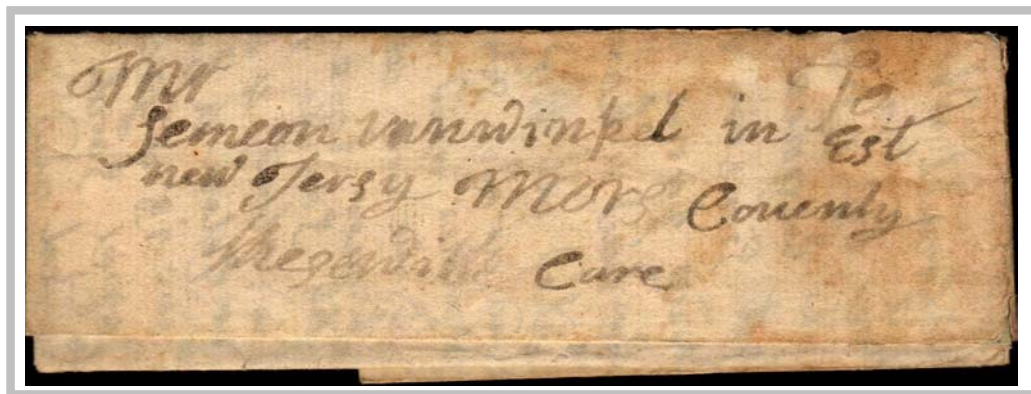 To
Mr
Semeon vanwinkel in Est
new Jersy Mors Couenty
Care